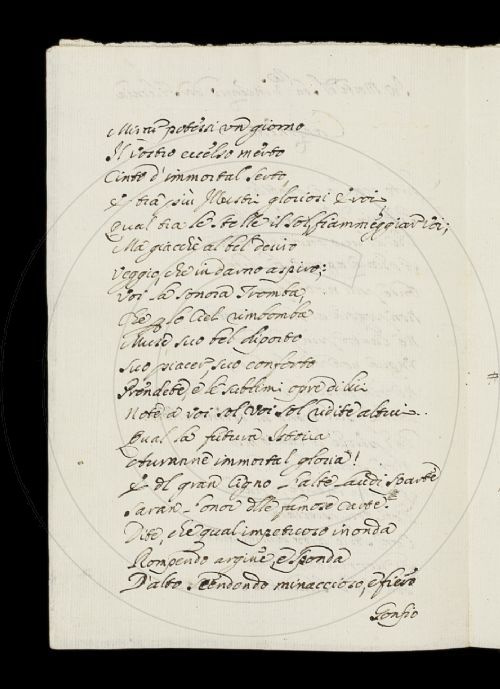 potessi un giorno
Il vostro eccelso merto
Cinto d'immortal serto,
E tra più Illustri gloriosi e voi
Qual tra le stelle il sol, fiammeggiar
Ma giacche al bel desio
Veggio, che indarno aspiro;
Voi la sonora Tromba,
Che p lo Ciel rimbomba
suo bel diporto
Suo piacer, suo conforto
Prendete, e le sublimi opre di lui
Note a voi sol, voi sol udite altrui.
Qual la futura Istoria
immortal gloria!
E del gran Cigno l'alte sparte
Saran l'onor dlle famose carte.
Dite, che qual impetuoso inonda
Rompendo argine, e sponda
D'alto scendendo minaccioso, e fiero
Gonfio